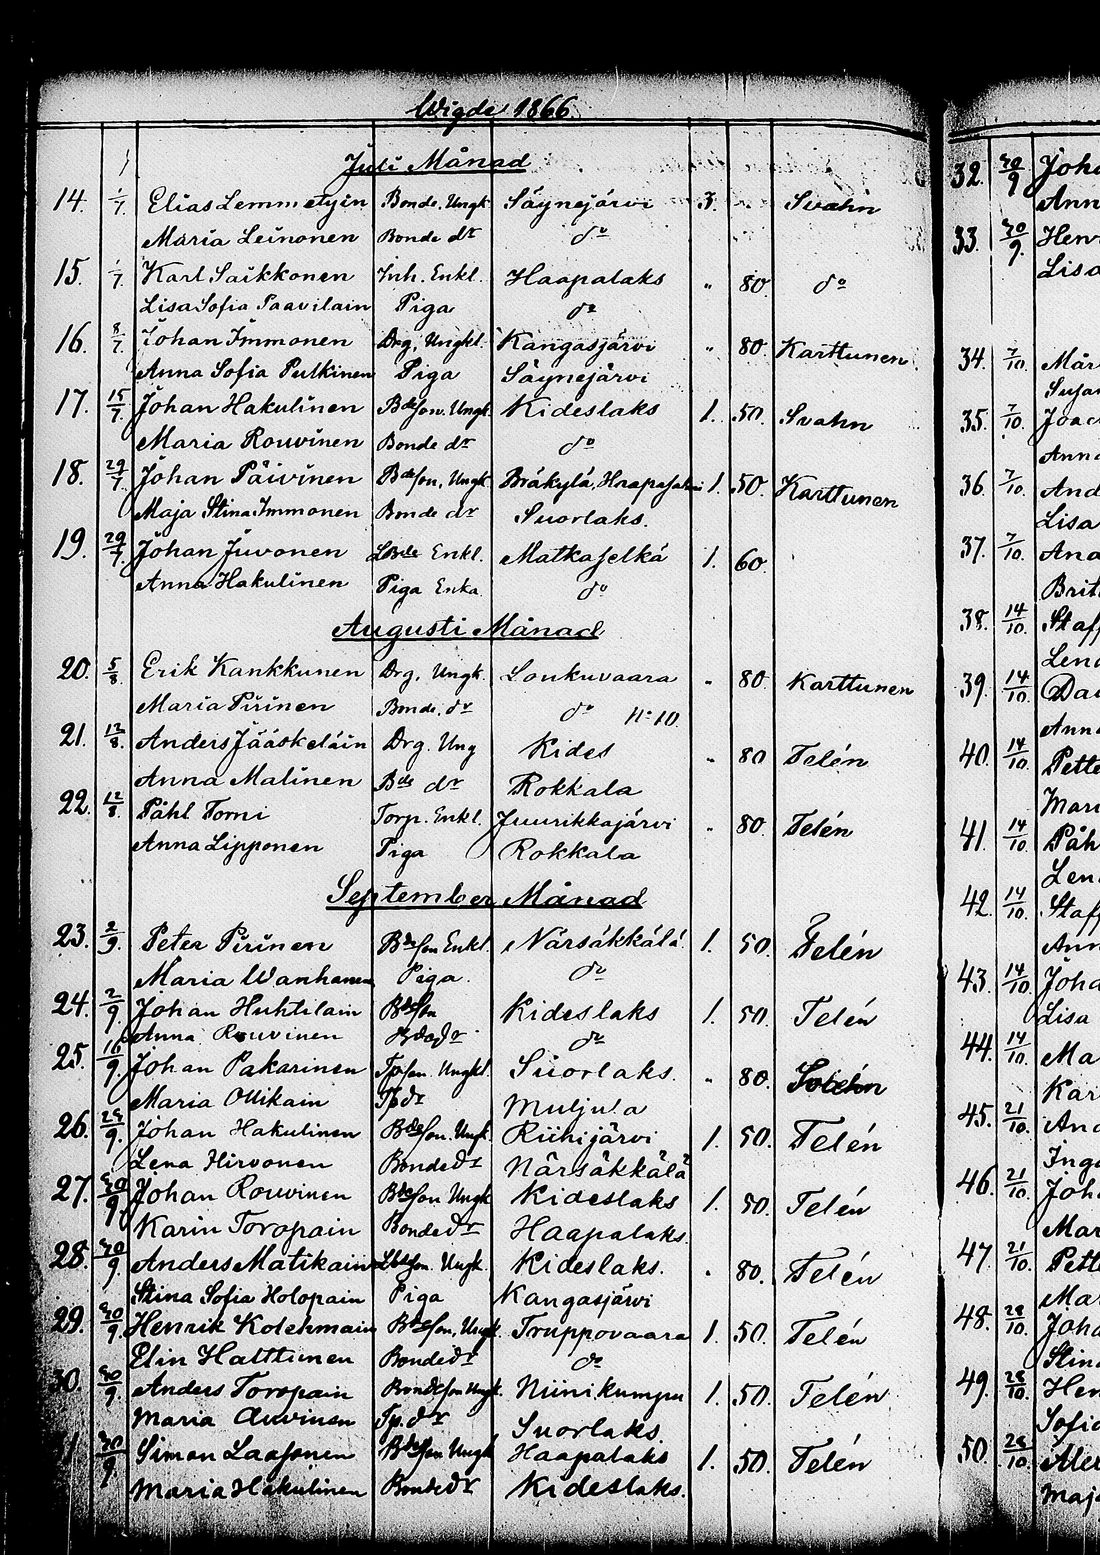 Wigde 1866
Juli Månad
14. 1/7 Elias Lemmetyin Bonde. Ungk Säynejärvi 3. .. Svahn
Maria Leinonen Bonde dr do
15. 1/7 Karl Saikkonen Inh. Enkl. Haapalaks " 80. do
Lisa Sofia Paavilain Piga do
16. 8/7 Johan Immonen Drg. Ungkl. Kangasjärvi " 80 Karttunen
Anna Sofia Putkinen Piga Säynejärvi
17. 15/7 Johan Hakulinen Bdeson. Ungk Kideslaks 1. 50. Svahn
Maria Rouvinen Bonde dr do
18. 29/7 Johan Päivinen Bdeson, Ungk Bräkylä, 1. 50. Karttunen
Maja Stina Immonen Bonde dr Suorlaks.
19. 29/7 Johan Juvonen Enkl. Matkaselkä 1. 60.
Anna Hakulinen Piga Enka do
Augusti Månad
20. 5/8 Erik Kankkunen Drg, Ungk. Loukuvaara " 80. Karttunen
Maria Pirinen Bonde, dr do No 10.
21. 12/8 Anders Jääskeläin Drg. Ung Kides " 80 Telén
Anna Malinen Bds dr Rokkala
22. 12/8 Påhl Tomi Torp. Enkl. Juurikkajärvi " 80. Telén
Anna Lipponen Piga Rokkala
September Månad
23. 2/9 Peter Pirinen Bdeson Enkl. Närsäkkälä 1. 50. Telén
Maria Wanhanen Piga. do
24. 2/9 Johan Huhtilain Bdeson Kideslaks 1. 50. Telén
Anna Rouvinen do
25. 16/9 Johan Pakarinen Tpson. Ungkl. Suorlaks. " 80.
Maria Ollikain Tpdr Muljula
26. /9 Johan Hakulinen Bdeson. Ungk. Riihijärvi 1. 50. Telén
Lena Hirvonen Bondedr Närsäkkälä
27. 30/9 Johan Rouvinen Bdeson Ungk Kideslaks 1. 50. Telén
Karin Toropain Bondedr Haapalaks.
28. 30/9 Anders Matikain Lbdson. Ungk. Kideslaks. " 80. Telén
Stina Sofia Holopain Piga Kangasjärvi
29. 30/9 Henrik Kolehmain Bdeson, Ungk. Truppovaara 1. 50. Telén
Elin Halttunen Bondedr do
30. 30/9 Anders Toropain Bondeson Ungk Niinikumpu 1. 50. Telén
Maria Auvinen Tp. dr Suorlaks.
30/9 Simon Laasonen Bdeson Ungk Haapalaks 1. 50. Telén
Maria Hakulinen Bondedr Kideslaks.
32. 30/9 Joha
Ann
33. 30/9 Hen
Lisa
34. 7/10. Mår
35. 7/10. Joac
Anna
36. 7/10. And
Lisa
37. 7/10. And
Brit
38. 14/10. Staff
Lena
39. 14/10. Dav
Anna
40. 14/10. Pette
Mari
41. 14/10. Påh
Lena
42. 14/10. Staff
Ann
43. 14/10. Joha
Lisa
44. 14/10. Ma
Kar
45. 21/10. And
Inga
46. 21/10. Joh
Mar
47. 21/10. Pette
Mar
48. 28/10. Joha
Stina
49. 28/10. Hen
Sofia
50. 28/10. Alex
Maja